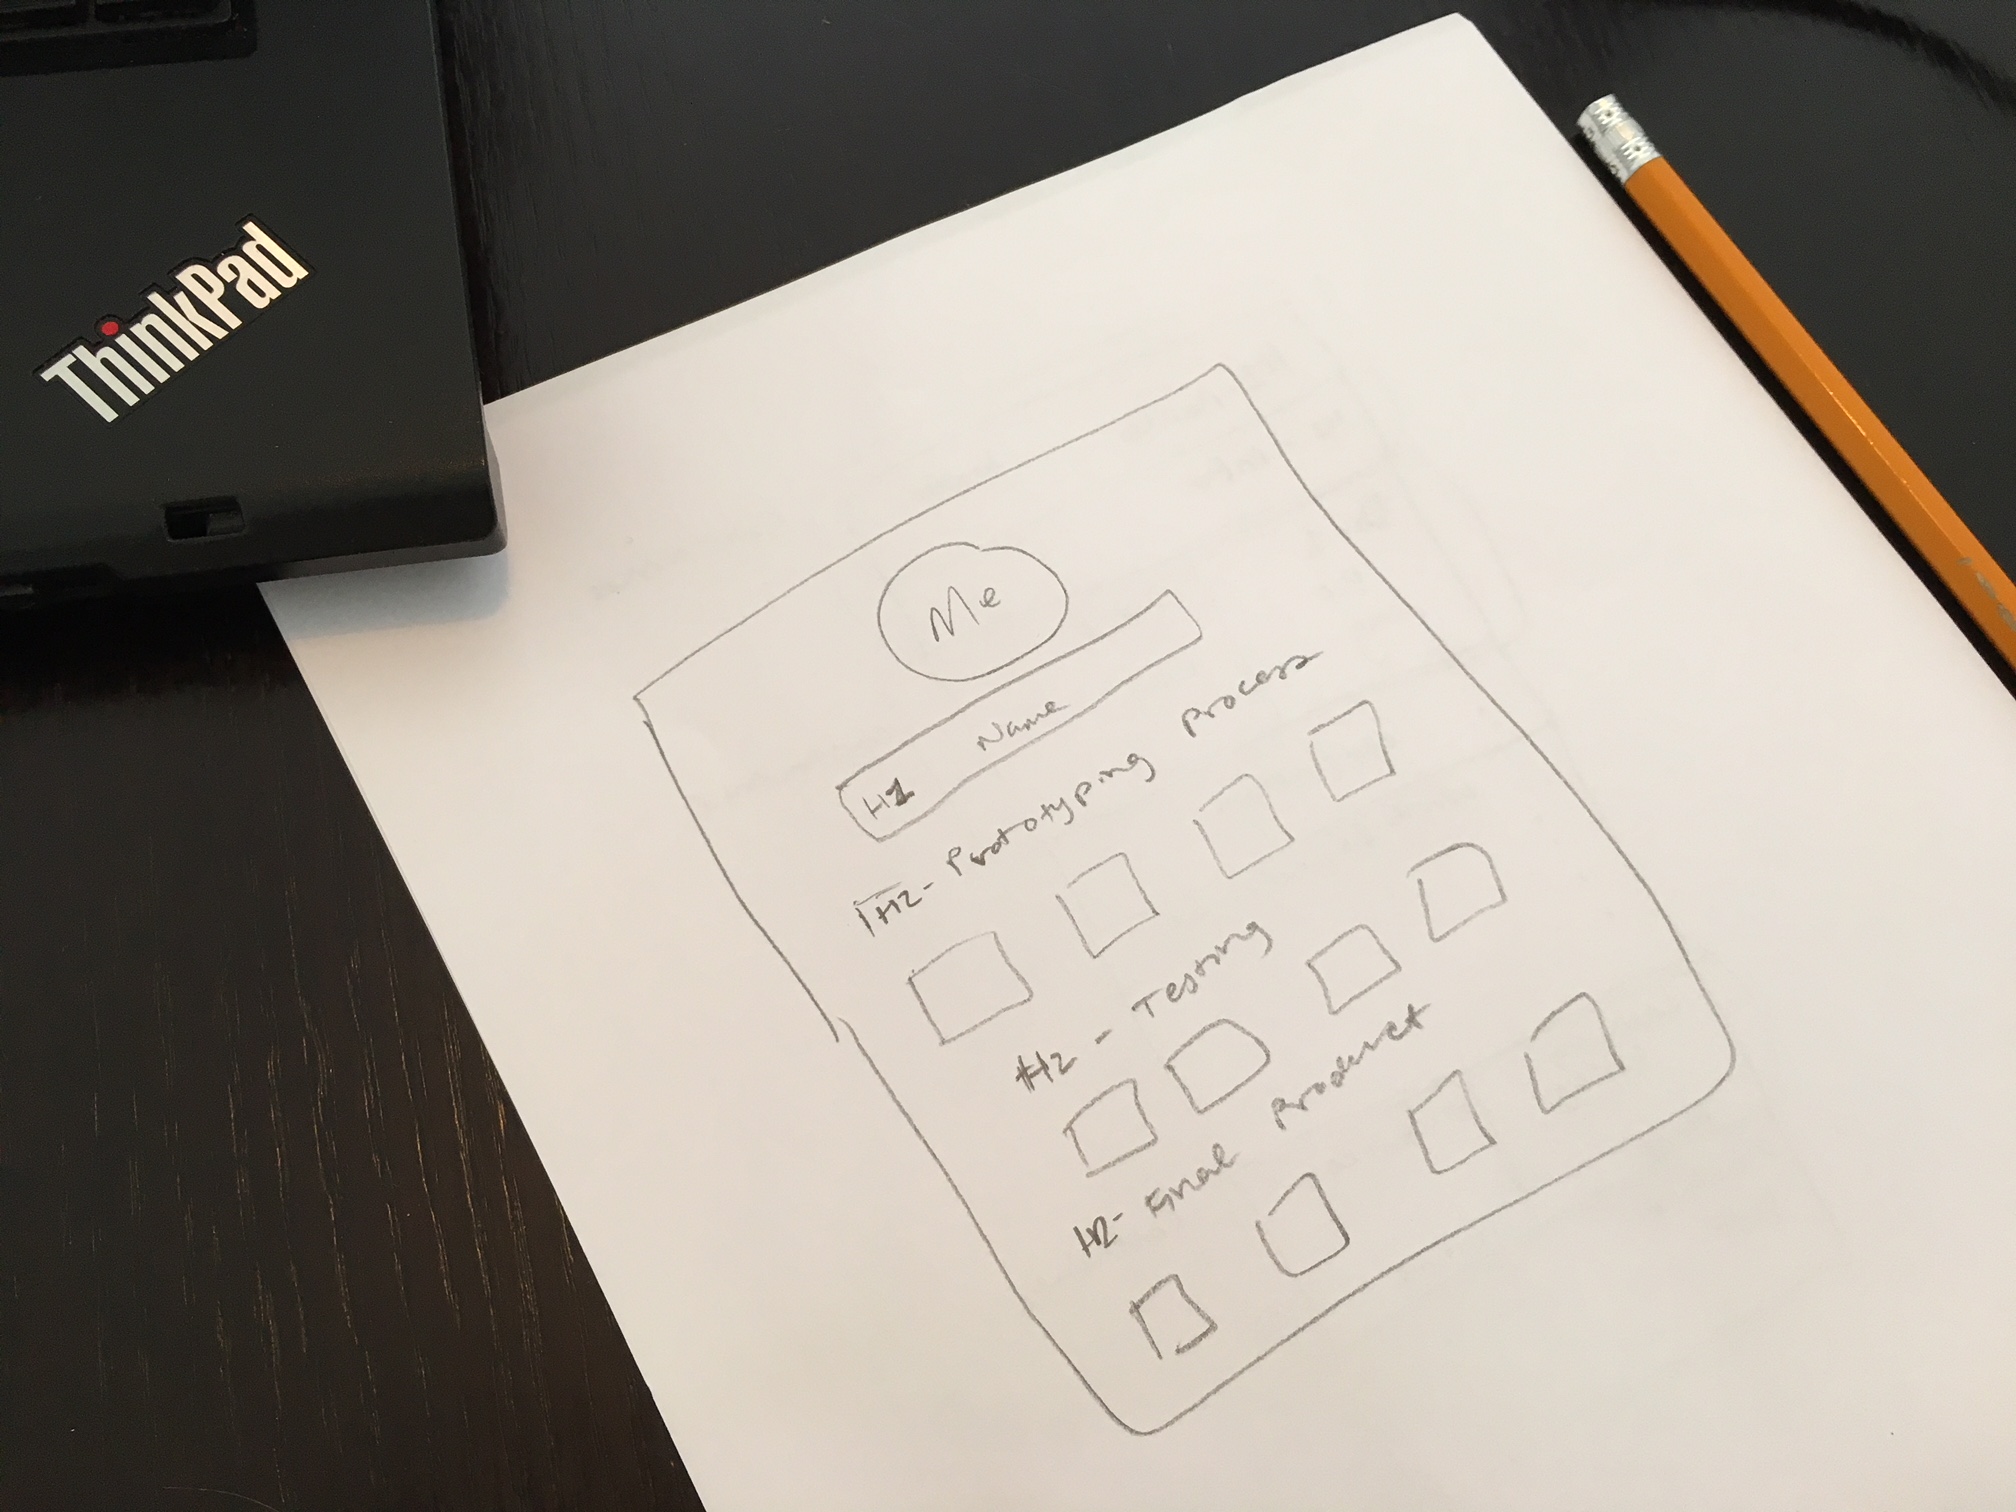 ThinkPad
Me
H1 Name
H2 - Prototyping Process
H2 - Testing
H2 - Final Product